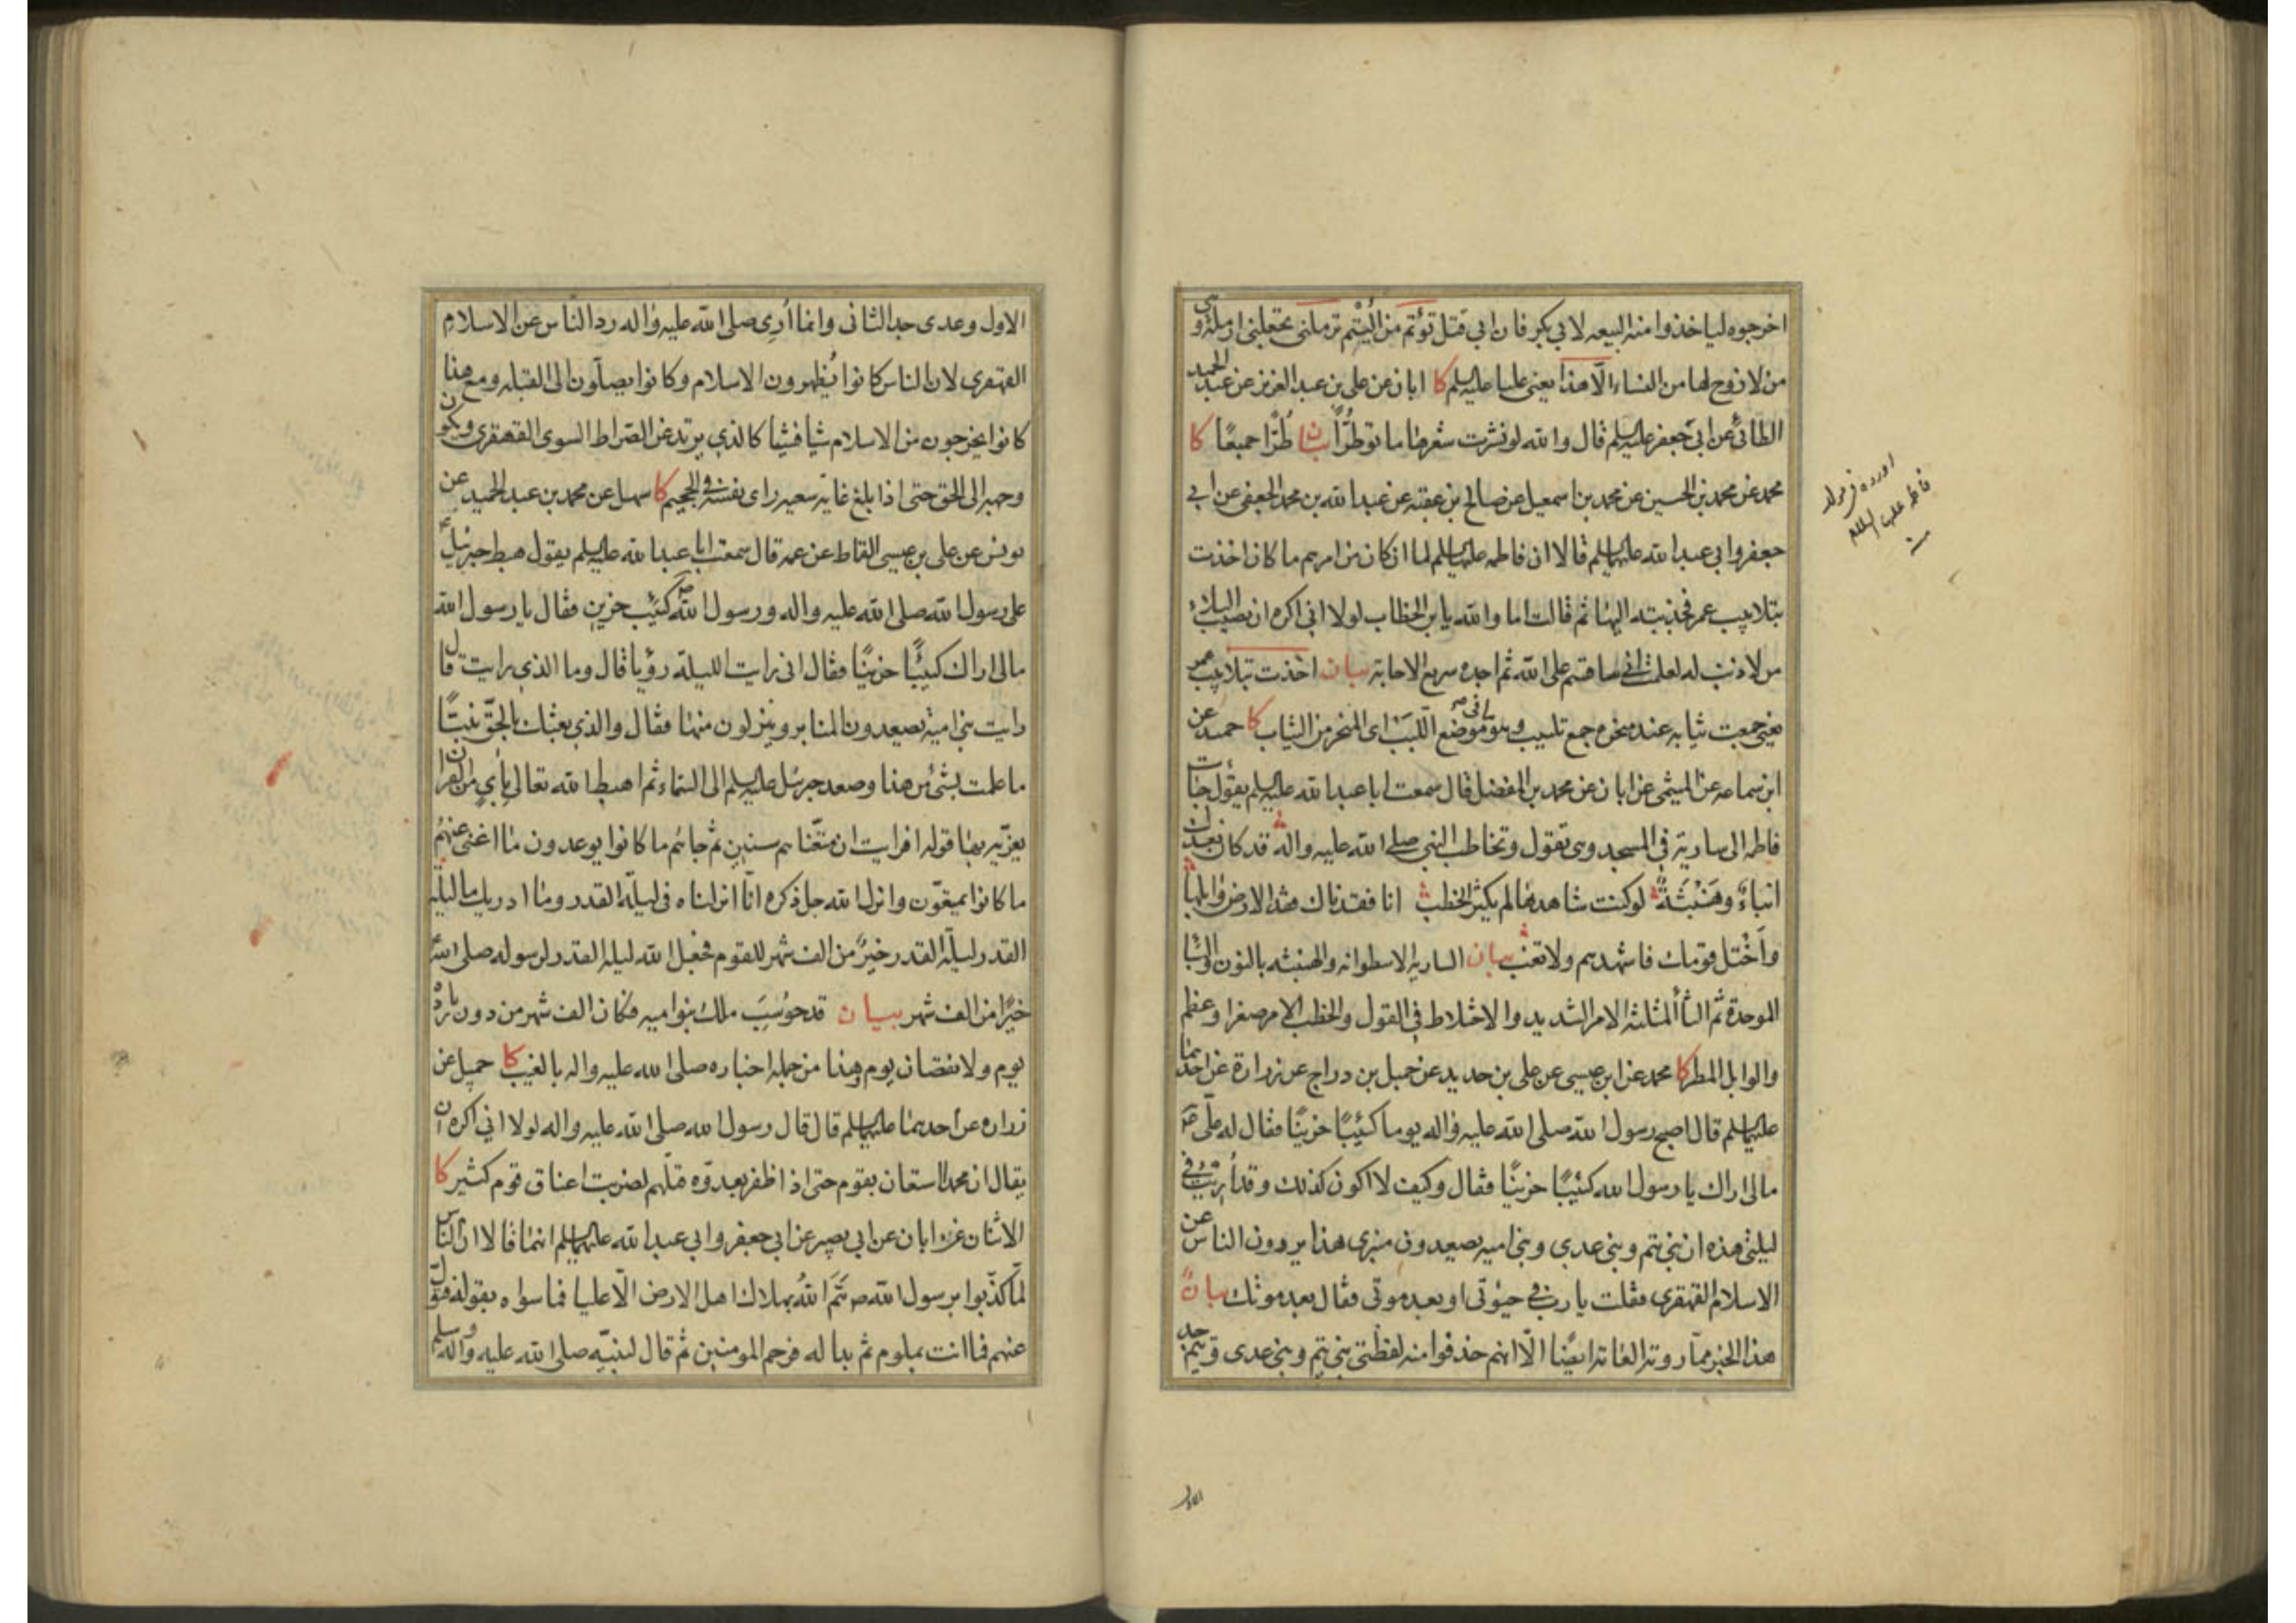 اخرجوه لياخذوا منه البيعه لابي بكر فان ابي قتل تؤتم من اليتم ترملني تجعلني ارملة وهي
من لا زوج لها من النساء الا هذا يعني عليا عليه السلم كا ابان عن علي بن عبد العزيز عن عبد الحميد
الطائي عن ابي جعفر عليه السلم قال والله لو نشرت شعرها ماتوا طُرًّا بيان طُرًّا جميعًا كا
محمد عن محمد بن الحسين عن محمد بن اسمعيل عن صالح بن عقبه عن عبد الله بن محمد الجعفي عن ابي
جعفر وابي عبد الله عليهما السلم قالا ان فاطمه عليها السلم لما ان كان من امرهم ما كان اخذت
بتلابيب عمر فجذبته اليها ثم قالت اما والله يا بن الخطاب لولا اني اكره ان يصيب البلاء
من لا ذنب له لعلمت اني ساقسم على الله ثم اجده سريع الاجابة بيان اخذت بتلابيب عمر
يعني جمعت ثيابه عند نحره جمع تلبيب وهو ما في موضع اللَّبَب اي المنحر من الثياب كا حميد عن
ابن سماعه عن الميثمي عن ابان عن محمد بن المفضل قال سمعت ابا عبد الله عليه السلم يقول جاءت
فاطمه الى سارية في المسجد وهي تقول وتخاطب النبي صلى الله عليه واله قد كان بعدك
انباءٌ وهَنْبَثَةٌ لو كنت شاهدها لم يكثر الخطب انا فقدناك فقد الارض وابلها
واَخْتل قومك فاشهدهم ولا تغب بيان الساريه الاسطوانه والهنبثه بالنون والباء
الموحدة ثم الثاء المثلثه الامر الشديد والاختلاط في القول والخطب الامر صغر او عظم
والوابل المطر كا محمد عن ابن عيسى عن علي بن حديد عن جميل بن دراج عن زرارة عن احدهما
عليهما السلم قال اصبح رسول الله صلى الله عليه واله يوما كئيبًا حزينًا فقال له علي ع
مالي اراك يا رسول الله كئيبًا حزينًا فقال وكيف لا اكون كذلك وقد اُريت في
ليلتي هذه ان بني تيم وبني عدي وبني اميه يصعدون منبري هذا يردون الناس عن
الاسلام القهقرى فقلت يا رب في حيوتي او بعد موتي فقال بعد موتك بيان
هذا الخبر مما روته العامة ايضًا الا انهم حذفوا منه لفظتي بني تيم وبني عدي وتيم جد
اورده في مولد
فاطمه عليها السلام
الاول
الاول وعدى جد الثاني وانما اُري صلى الله عليه واله رد الناس عن الاسلام
القهقرى لان الناس كانوا يُظهرون الاسلام وكانوا يصلّون الى القبله ومع هذا
كانوا يخرجون من الاسلام شيا فشيا كالذي يرتد عن الصراط السوي القهقرى ويكون
وجهه الى الحق حتى اذا بلغ غاية سعيه راى نفسه في الجحيم كا سهل عن محمد بن عبد الحميد عن
يونس عن علي بن عيسى القماط عن عمه قال سمعت ابا عبد الله عليه السلم يقول هبط جبرئيل ع
على رسول الله صلى الله عليه واله ورسول الله ص كئيب حزين فقال يا رسول الله
مالي اراك كئيبًا حزينًا فقال اني رايت الليلة رؤيا قال وما الذي رايت قال
رايت بني امية يصعدون المنابر وينزلون منها فقال والذي بعثك بالحق نبيًّا
ما علمت بشئ من هذا وصعد جبرئيل عليه السلم الى السماء ثم اهبط الله تعالى بآيٍ من القران
يعزّيه بها قوله افرايت ان متّعناهم سنين ثم جاءهم ما كانوا يوعدون ما اغنى عنهم
ما كانوا يمتعون وانزل الله جل ذكره انّا انزلناه في ليلة القدر وما ادريك ما ليلة
القدر ليلة القدر خيرٌ من الف شهر للقوم فجعل الله ليلة القدر لرسوله صلى الله
خيرًا من الف شهر بيان قد حوسِبَ ملك بنو اميه فكان الف شهر من دون زيادة
يوم ولا نقصان يوم وهذا من جمله اخباره صلى الله عليه واله بالغيب كا جميل عن
زراره عن احدهما عليهما السلم قال قال رسول الله صلى الله عليه واله لولا اني اكره ان
يقال ان محمدا استعان بقوم حتى اذا ظفر بعدوّه قتلهم لضربت اعناق قوم كثير كا
الاثنان عن ابان عن ابي بصير عن ابي جعفر وابي عبد الله عليهما السلم انهما قالا ان الناس
لمّا كذّبوا برسول الله ص هَمَّ اللهُ بهلاك اهل الارض الّا عليا فما سواه بقوله فتول
عنهم فما انت بملوم ثم بدا له فرحم المومنين ثم قال لنبيّه صلى الله عليه واله وسلم